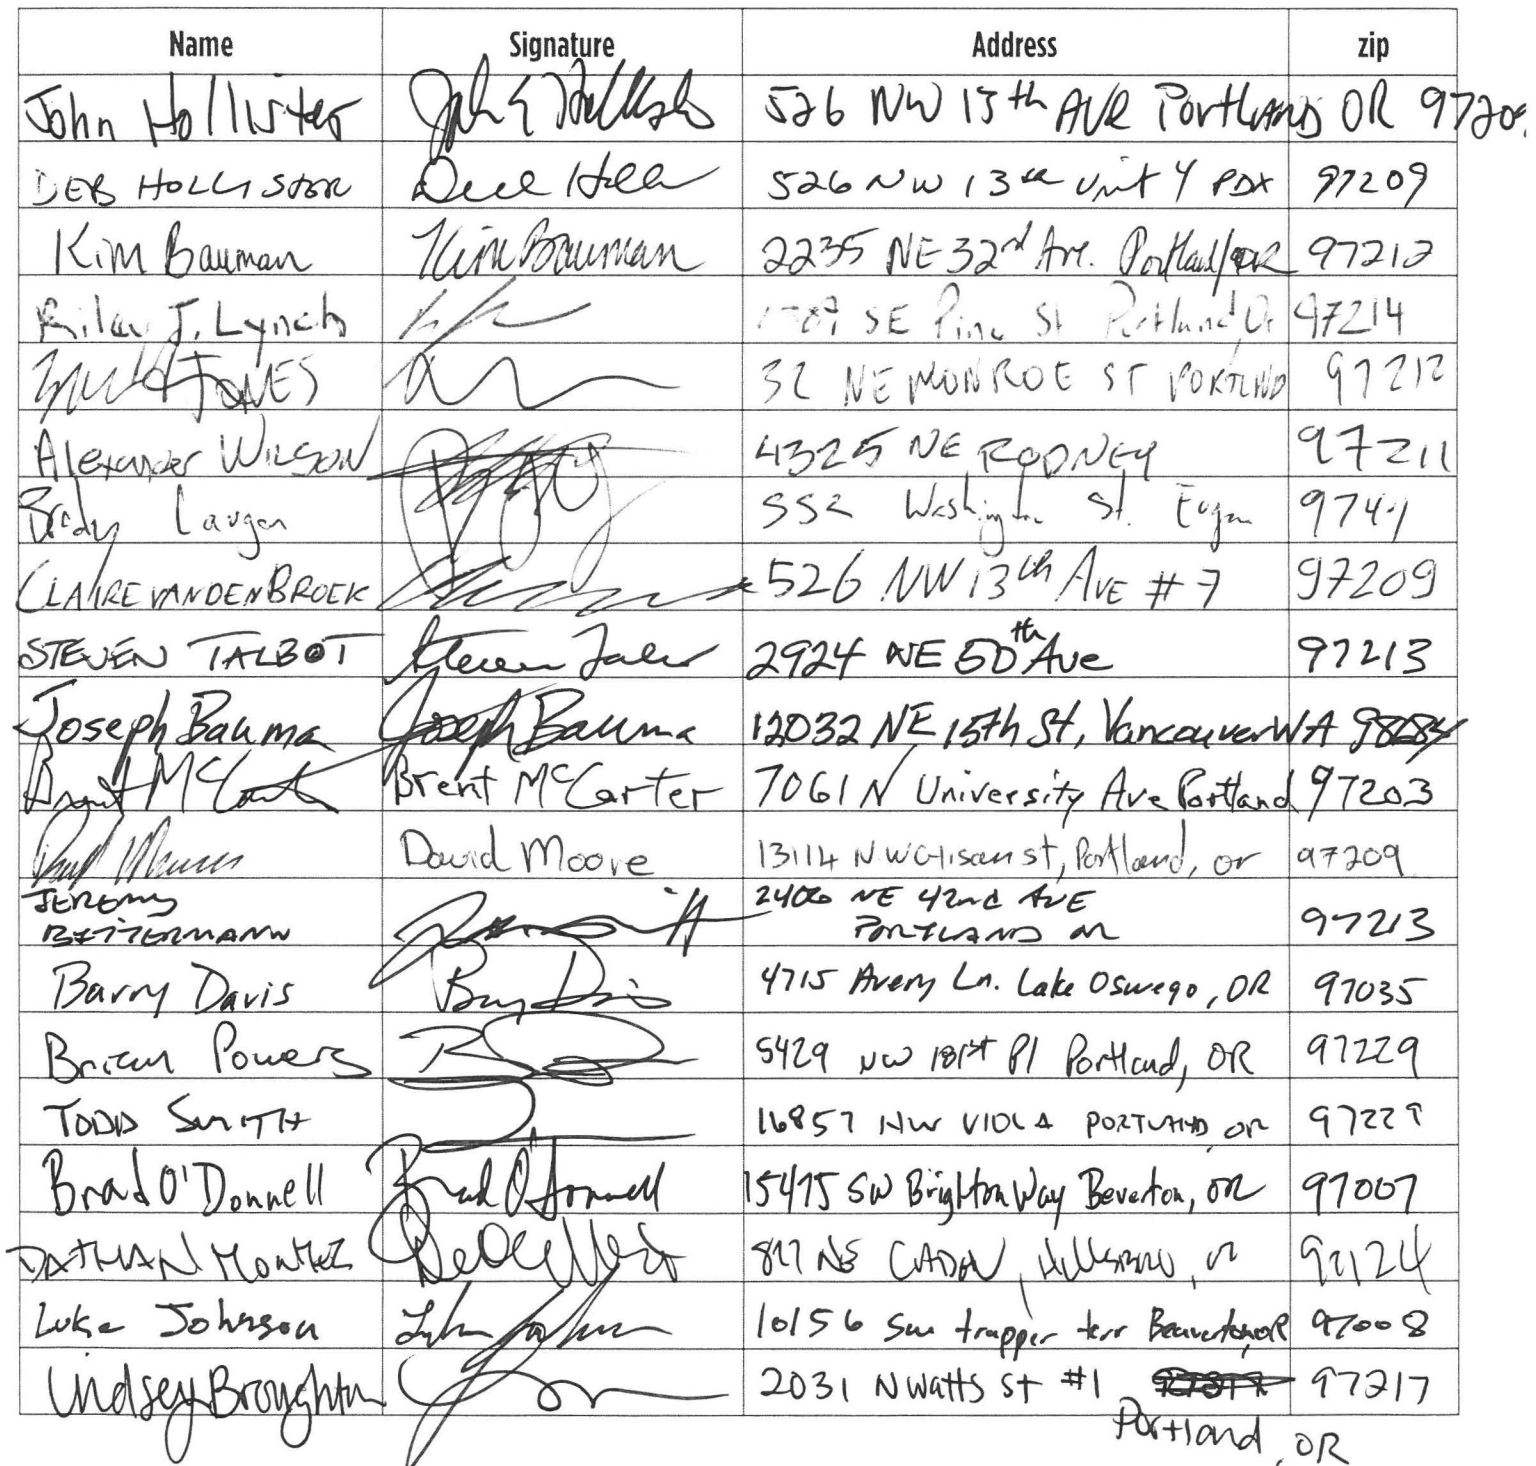 Name Signature Address zip
John Hollister John Hollister 526 NW 13th AVE Portland OR 97209
DEB HOLLISTER 526 NW 13th Unit 4 PDX 97209
Kim Bauman Kim Bauman 2235 NE 32nd Ave. Portland/OR 97212
Riley J. Lynch SE Pine St Portland Or 97214
JONES 32 NE MONROE ST PORTLAND 97212
Alexander WILSON 4325 NE RODNEY 97211
Brady 552 Washington St. Eugene
CLAIRE VANDENBROEK 526 NW 13th AVE #7 97209
STEVEN TALBOT Steven 2924 NE 50th Ave 97213
Joseph Bauma Joseph Bauma 12032 NE 15th St, Vancouver WA
Brent McCarter Brent McCarter 7061 N University Ave Portland 97203
David Moore NW Glisan st, Portland, or 97209
JEREMY 2406 NE 42nd AVE
BITTERMANN PORTLAND OR 97213
Barry Davis Barry Davis 4715 Avery Ln. Lake Oswego, OR 97035
Brian Powers 5429 NW 181st Pl Portland, OR 97229
TODD SMITH 16857 NW VIOLA PORTLAND OR 97229
Brad O'Donnell Brad O'Donnell 15475 SW Brighton Way Beverton, OR 97007
NE HILLSBORO, 97124
Luke Johnson Luke Johnson 10156 SW trapper terr Beaverton OR 97008
Lindsey Broughton 2031 N Watts St #1 97217
Portland, OR